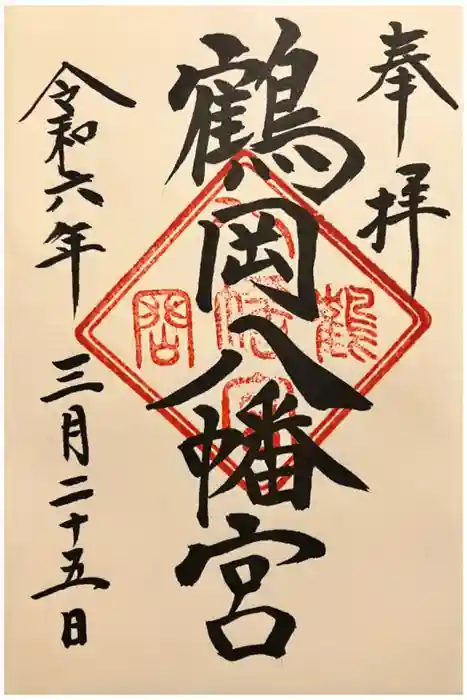 奉拝
鶴岡八幡宮
令和六年三月二十五日
鶴
岡